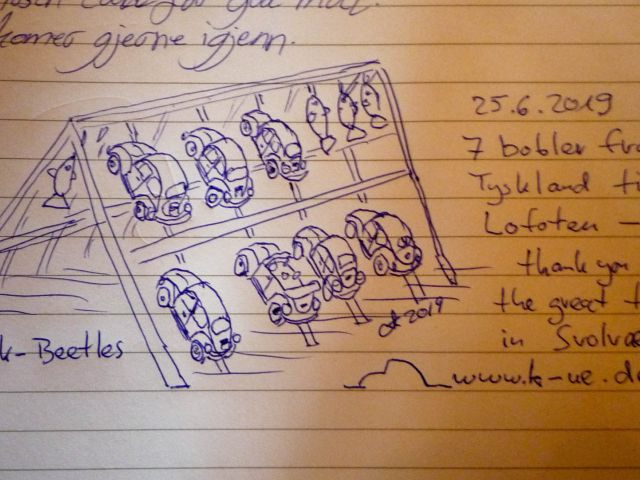 for gua mat.
komer gjerne igjenn.
25.6.2019
7 bobler fra
Tyskland ti
Lofoten —
thank you
the great t
in Svolvae
k-Beetles
2019
www.k-ue.de